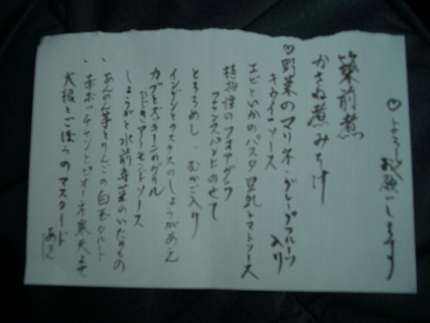 ♡よろしくお願いします
筑前煮
かさね煮みそ汁
♡野菜のマリネ・グレープフルーツ入り
キウイソース
エビといかのパスタ 豆乳トマトソース
植物性のフォアグラ
フランスパンにのせて
とろろめし、むかご入り
インゲンとワカメのしょうがあえ
カブと大キーンのグリル
アーモンドソース
しょうがと水前寺菜のいたもの
・あんのう芋とりんごの白玉タルト
・赤ボッチャントピオーネ寒天よせ
大根とごぼうのマスタードあえ